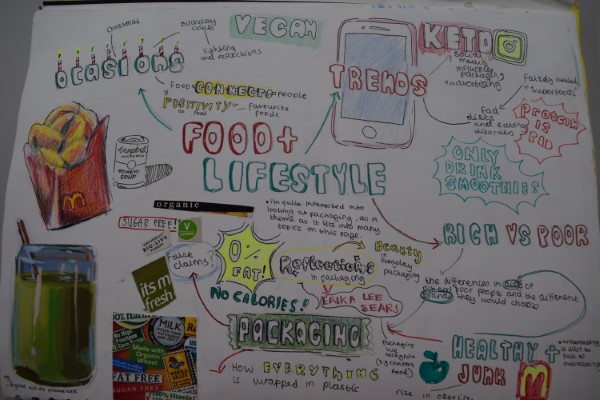 VEGAN
KETO
Birthday
cake
OCASIONS
social
media
influences
packaging
+ advertising
Food CONNECTS people
POSITIVITY
of food
favourite
foods
TRENDS
Falsely labelled
"superfoods"
Fad
diets
and eating
disorders
PROTEIN
IS
BAD
FOOD +
LIFESTYLE
Campbell's
TOMATO
SOUP
ONLY
DRINK
SMOOTHIES
organic
• I'm quite interested into
looking at packaging, as a
theme as it ties into many
topics on this page.
SUGAR FREE!
RICH VS POOR
False
claims!
0%
FAT!
Reflections
in packaging
Beauty
in everyday
packaging
it's m
fresh
NO CALORIES!
ERIKA LEE
SEARS!
the differences in diet of
rich and poor people and the different
brands they would choose
PACKAGING
MILK
Made with
Organic
Wheat
FAT FREE
SUGAR FREE
HEALTHY +
JUNK
HOW EVERYTHING
is wrapped in plastic
rise in obesity